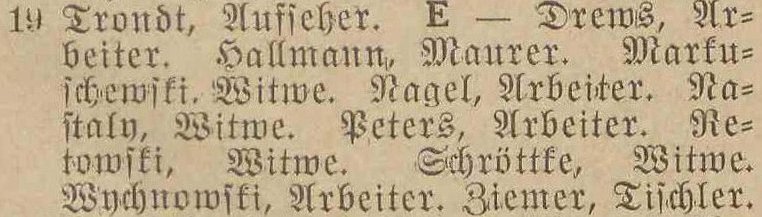 19 Trondt, Aufseher. E — Drews, Ar=
beiter. Hallmann, Maurer. Marku=
schewski, Witwe. Nagel, Arbeiter. Na=
staly, Witwe. Peters, Arbeiter. Re=
towski, Witwe. Schröttke, Witwe.
Wychnowski, Arbeiter. Ziemer, Tischler.